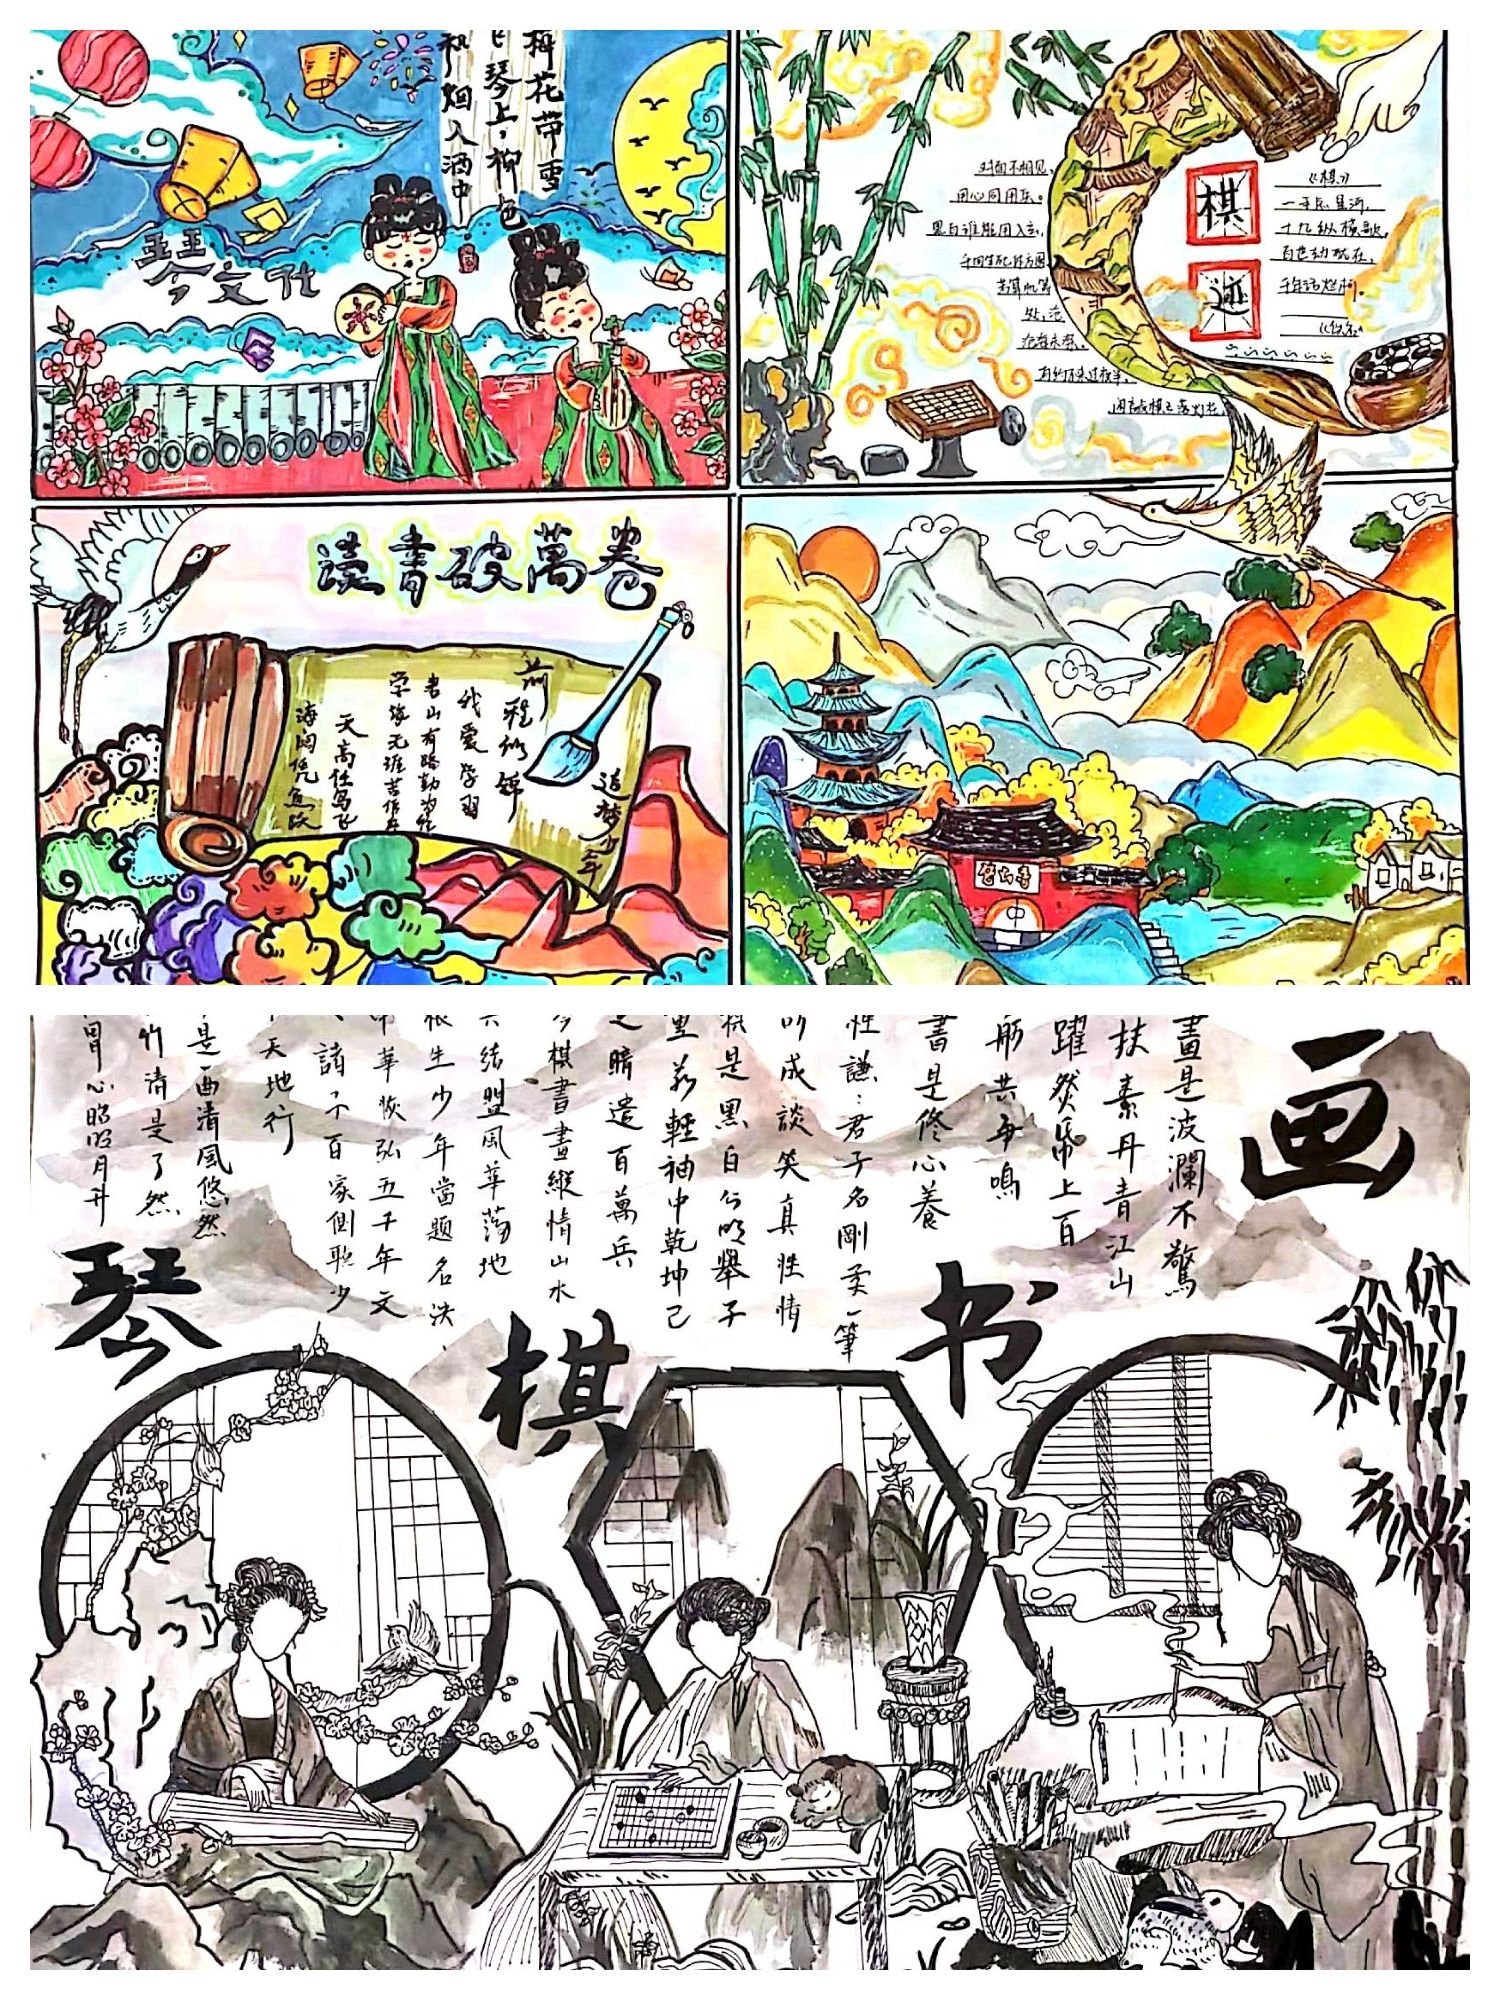 梅花带雪
飞琴上,柳色
和烟入酒中
琴文化
对面不相见,
用心同用兵。
千回生死体方圆
有约不来过夜半,
闲敲棋子落灯花
棋
迹
《棋》
十九纵横歌。
千年话烂柯。
读書破萬卷
前程似锦
我爱学习
书山有路勤为径
学海无涯苦作舟
天高任鸟飞
海阔凭鱼跃
追梦少年
中
画
畫是波瀾不驚
扶素丹青江山
躍然帛上百
舸共争鳴
書是修心養
性謙:君子名剛柔一筆
所成談笑真性情
棋是黑白分明舉子
重若輕袖中乾坤己
之睛遣百萬兵
琴棋書畫縱情山水
共結盟風華荡地
根生少年當題名泱、
中華恢弘五千年文
諸子百家側
天地行
是一曲清風悠然
竹清是了然
心昭昭月升
琴
棋
书